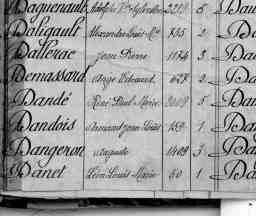 Daguenault Adolphe Pre Sylvestre 2209 5 Dau
Daligault Alexandre Louis 735 2 Da
Dallerac Jean Pierre 1174 3 Da
Demassard Ange Edouard 678 2 Da
Dandé René Paul Marie 2009 5 Da
Dandois Armand Jean Louis 159 1 Da
Dangeron Auguste 1409 3 Da
Danet Léon Louis Marie 50 1 Da